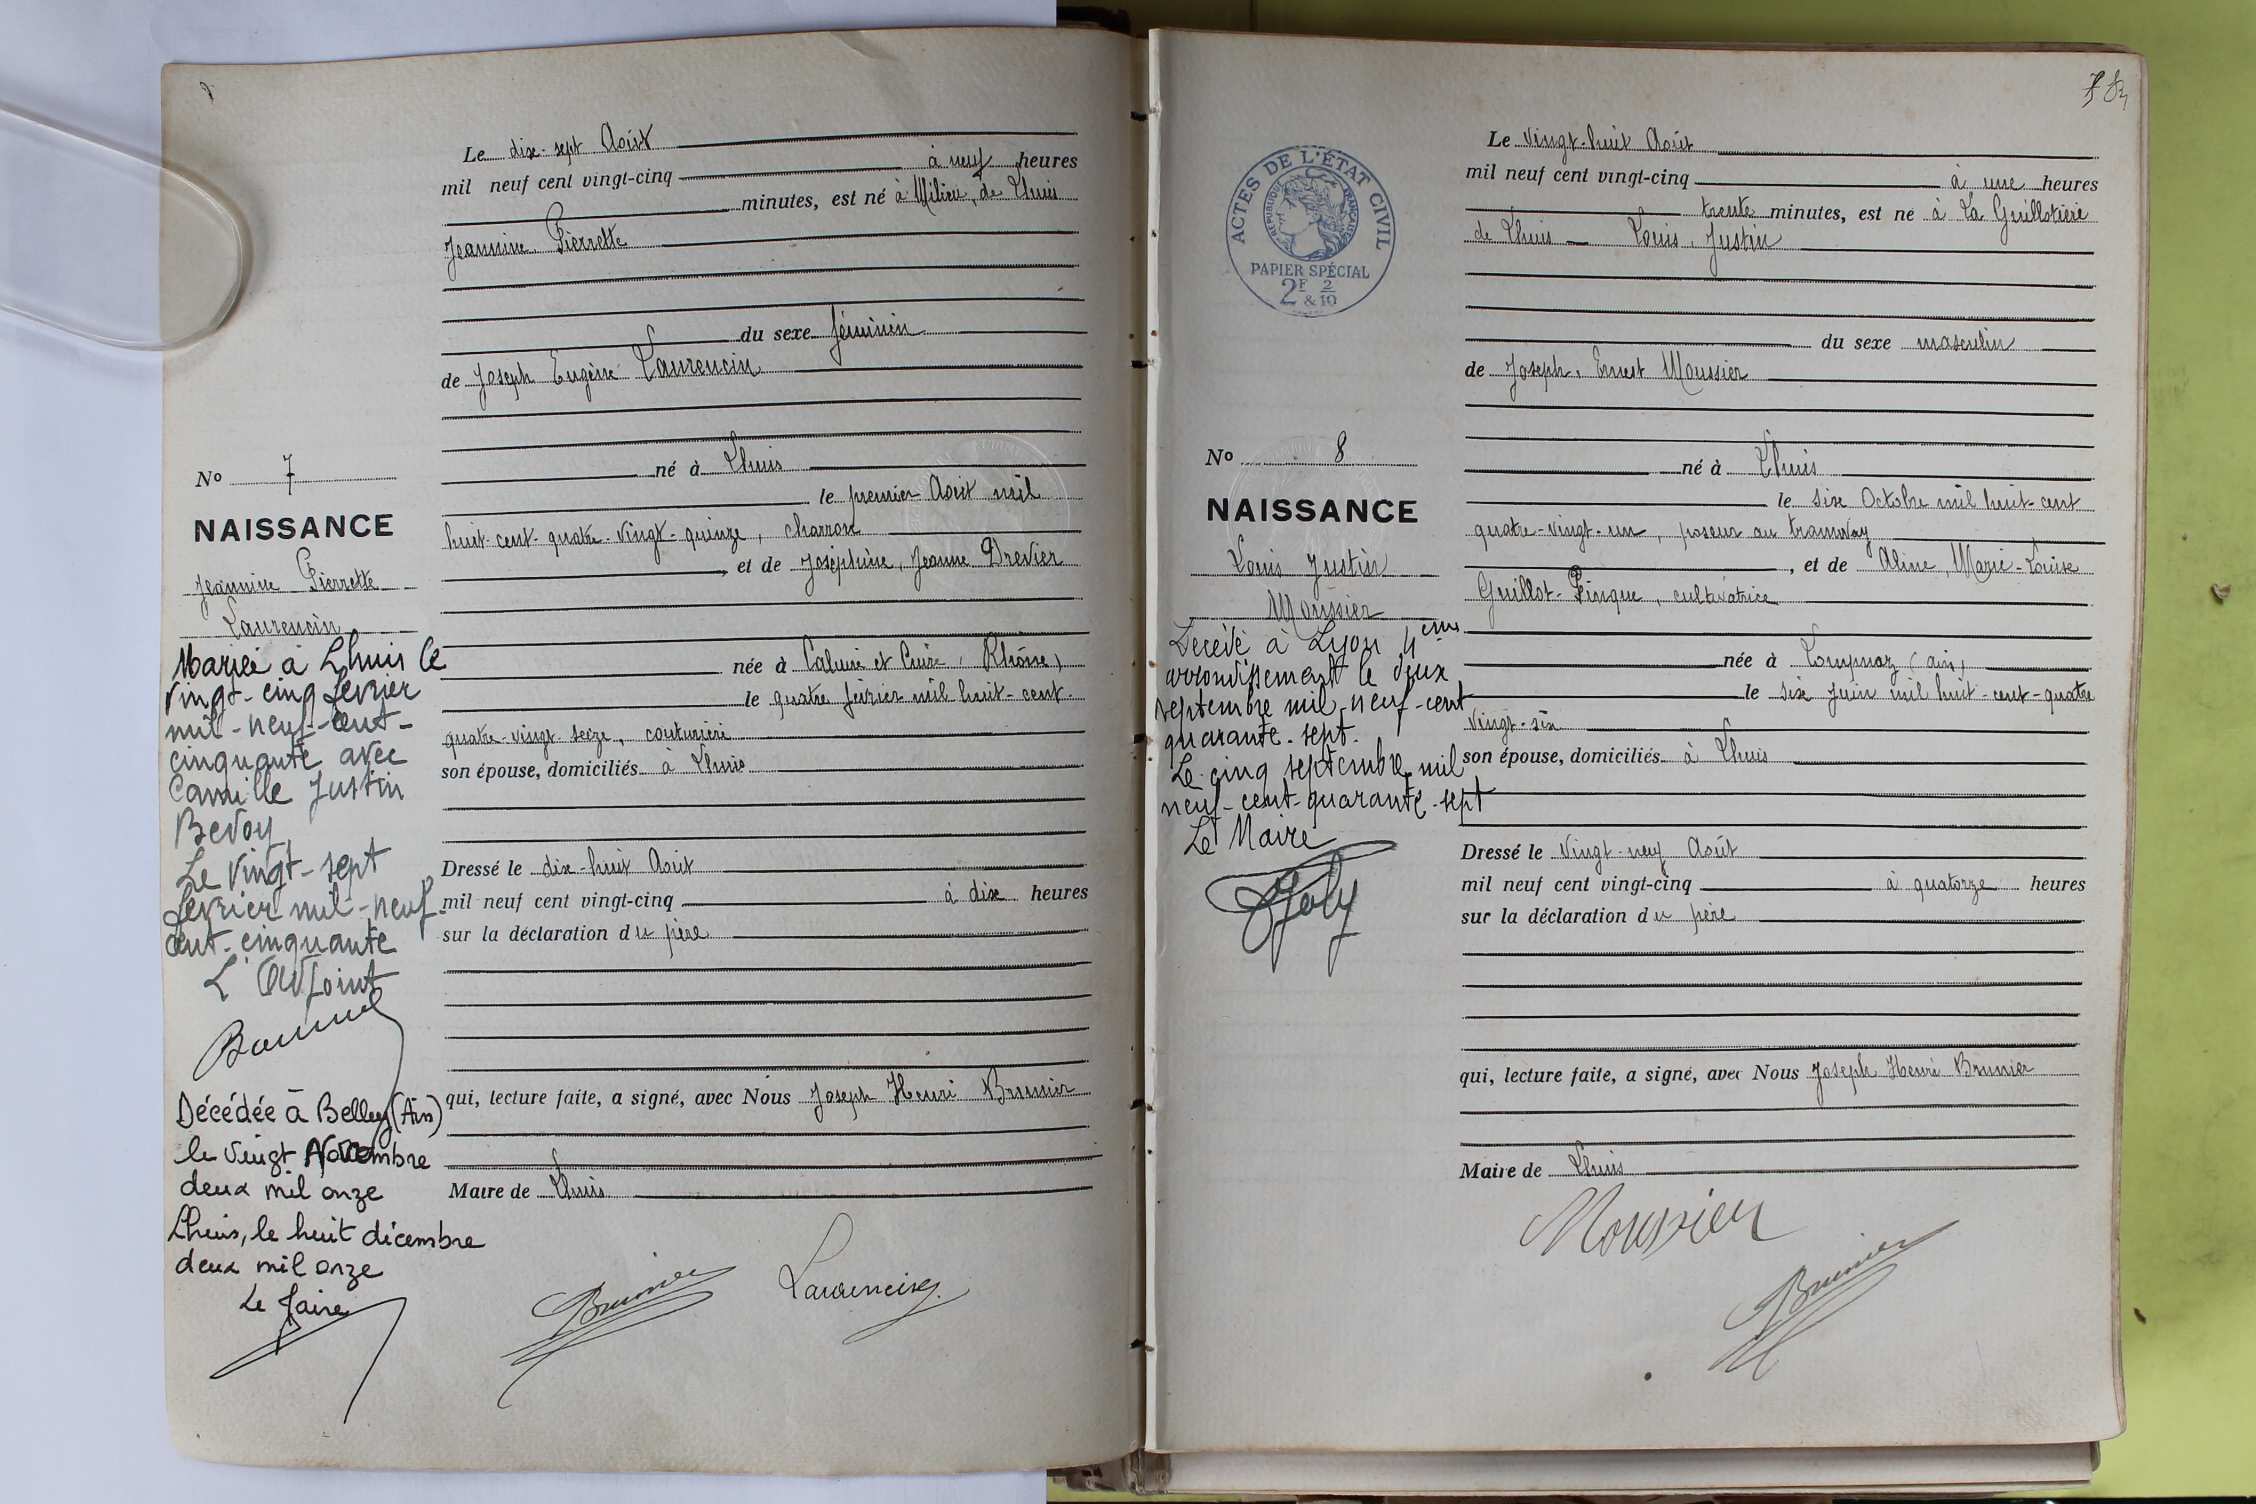 Le dix-sept Août
mil neuf cent vingt-cinq à neuf heures
minutes, est né à Milieu, de Lhuis
Jeannine Pierrette
du sexe féminin
de Joseph Eugène Laurencin
né à Lhuis
le premier Août mil
huit-cent-quatre-vingt-quinze, charron
, et de Joséphine, Jeanne Drevier
née à Caluire et Cuire, Rhône)
le quatre février mil huit-cent-
quatre-vingt-seize, couturière
son épouse, domiciliés à Lhuis
Dressé le dix-huit Août
mil neuf cent vingt-cinq à dix heures
sur la déclaration du père
qui, lecture faite, a signé, avec Nous Joseph Henri Brunier
Maire de Lhuis
Brunier Laurencin
No 7
NAISSANCE
Jeannine Pierrette
Laurencin
Mariée à Lhuis le
vingt-cinq février
mil-neuf-cent-
cinquante avec
Camille Justin
Bevoy
Le vingt-sept
février mil-neuf-
cent-cinquante
L'Adjoint
Décédée à Belley (Ain)
le vingt Novembre
deux mil onze
Lhuis, le huit décembre
deux mil onze
Le Maire
ACTES DE L'ÉTAT CIVIL
RÉPUBLIQUE FRANÇAISE
PAPIER SPÉCIAL
2F 2
& 10
Le vingt-huit Août
mil neuf cent vingt-cinq à une heures
trente minutes, est né à La Guillotière
de Lhuis — Louis, Justin
du sexe masculin
de Joseph, Ernest Moussier
né à Lhuis
le six Octobre mil huit-cent
quatre-vingt-un, poseur au tramway
, et de Aline, Marie-Louise
Guillot-Pingue, cultivatrice
née à Lompnaz (ain)
le six Juin mil huit-cent-quatre
vingt-six
son épouse, domiciliés à Lhuis
Dressé le vingt-neuf Août
mil neuf cent vingt-cinq à quatorze heures
sur la déclaration du père
qui, lecture faite, a signé, avec Nous Joseph Henri Brunier
Maire de Lhuis
Moussier
Brunier
No 8
NAISSANCE
Louis Justin
Moussier
Décédé à Lyon 4eme
arrondissement le deux
septembre mil-neuf-cent
quarante-sept.
Le cinq septembre mil
neuf-cent-quarante-sept
Le Maire
Joly